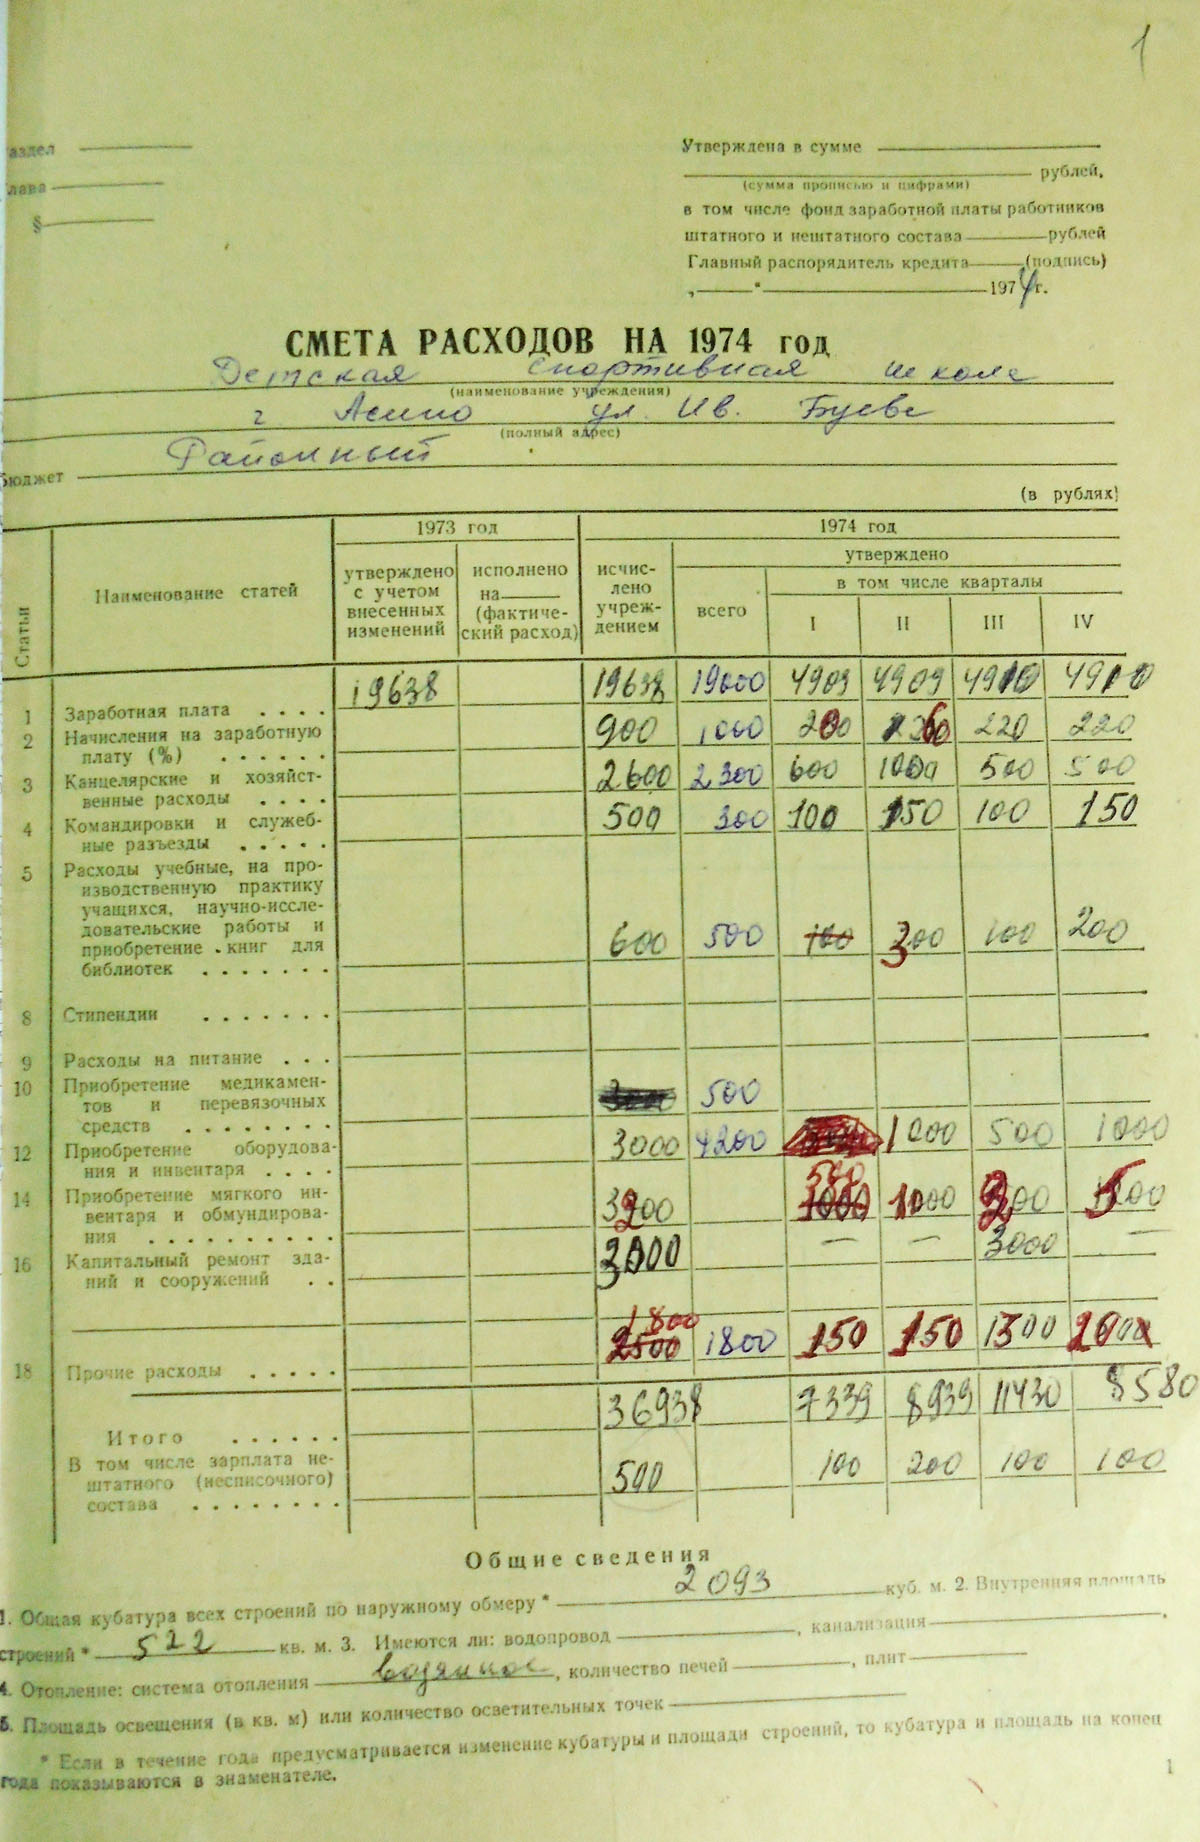 1
аздел
лава
§
Утверждена в сумме
рублей,
(сумма прописью и цифрами)
в том числе фонд заработной платы работников
штатного и нештатного состава рублей
Главный распорядитель кредита (подпись)
„ " 1974 г.
СМЕТА РАСХОДОВ НА 1974 год
Детская спортивная школа
(наименование учреждения)
г Асино ул. Ив. Буева
(полный адрес)
бюджет Районный
(в рублях)
Статьи
Наименование статей
1973 год
утверждено с учетом внесенных изменений
исполнено на (фактический расход)
1974 год
исчислено учреждением
утверждено
всего
в том числе кварталы
I II III IV
19638 19638 19600 4909 4909 4910 4910
1 Заработная плата . . . .
900 1000 200 220 220
2 Начисления на заработную
плату (%) . . . . . .
2600 2300 600 1000 500 500
3 Канцелярские и хозяйст-
венные расходы . . . .
500 300 100 150 100 150
4 Командировки и служеб-
ные разъезды . . . . .
5 Расходы учебные, на про-
изводственную практику
учащихся, научно-иссле-
довательские работы и
приобретение книг для
библиотек . . . . . . .
600 500 100 300 100 200
8 Стипендии . . . . . . .
9 Расходы на питание . . .
10 Приобретение медикамен-
тов и перевязочных
средств . . . . . . . .
500
3000 4200 1000 500 1000
12 Приобретение оборудова-
ния и инвентаря . . . .
500
3200 1000 1000
14 Приобретение мягкого ин-
вентаря и обмундирова-
ния . . . . . . . . . .
3000 — — 3000 —
16 Капитальный ремонт зда-
ний и сооружений . .
1800
2500 1800 150 150 1300
18 Прочие расходы . . . . .
36938 7339 8939 11430 8580
Итого . . . . . .
В том числе зарплата не-
штатного (несписочного)
состава . . . . . . . .
500 100 200 100 100
Общие сведения
1. Общая кубатура всех строений по наружному обмеру * 2093 куб. м. 2. Внутренняя площадь
строений * 522 кв. м. 3. Имеются ли: водопровод , канализация .
4. Отопление: система отопления водяное , количество печей , плит
5. Площадь освещения (в кв. м) или количество осветительных точек
* Если в течение года предусматривается изменение кубатуры и площади строений, то кубатура и площадь на конец
года показываются в знаменателе.
1